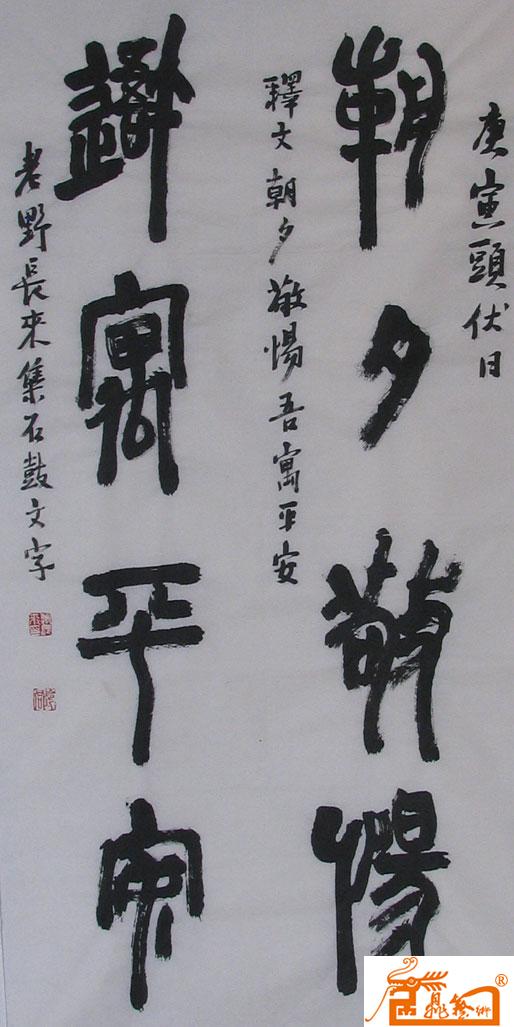 庚寅頭伏日
朝夕敬惕
釋文 朝夕敬惕吾寓平安
寓平安
老野長來集石鼓文字